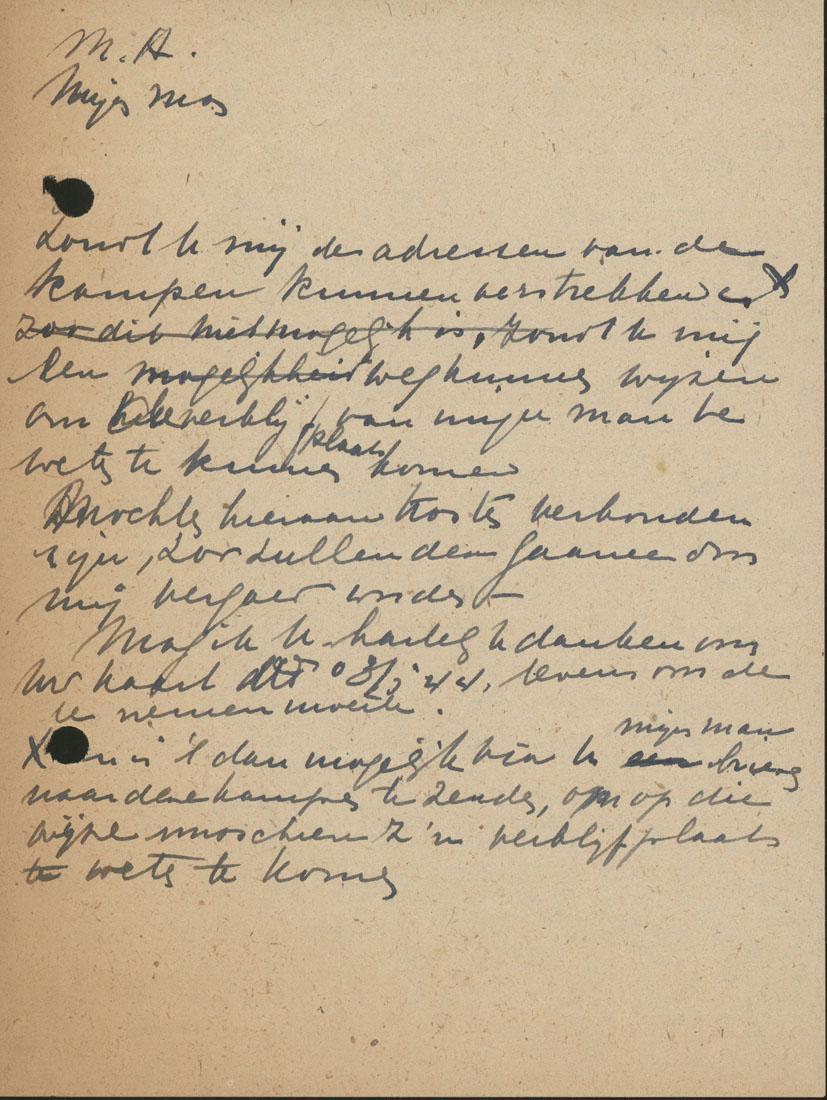 M. H.
Mijn man
Zoudt U mij de adressen van de
kampen kunnen verstrekken en X
Zoo dit niet mogelijk is, zoudt U mij
een mogelijkheid weg kunnen wijzen
om verblijf van mijn man te
plaats
weten te kunnen komen
Mochten hieraan kosten verbonden
zijn, zoo zullen deze gaarne door
mij vergoed worden —
Mag ik U hartelijk danken voor
Uw kaart 44, tevens voor de
te nemen moeite.
mijn man
X en is 't dan mogelijk via U een brieven
naar deze kampen te zenden, om op die
wijze misschien z'n verblijfplaats
te weten te komen